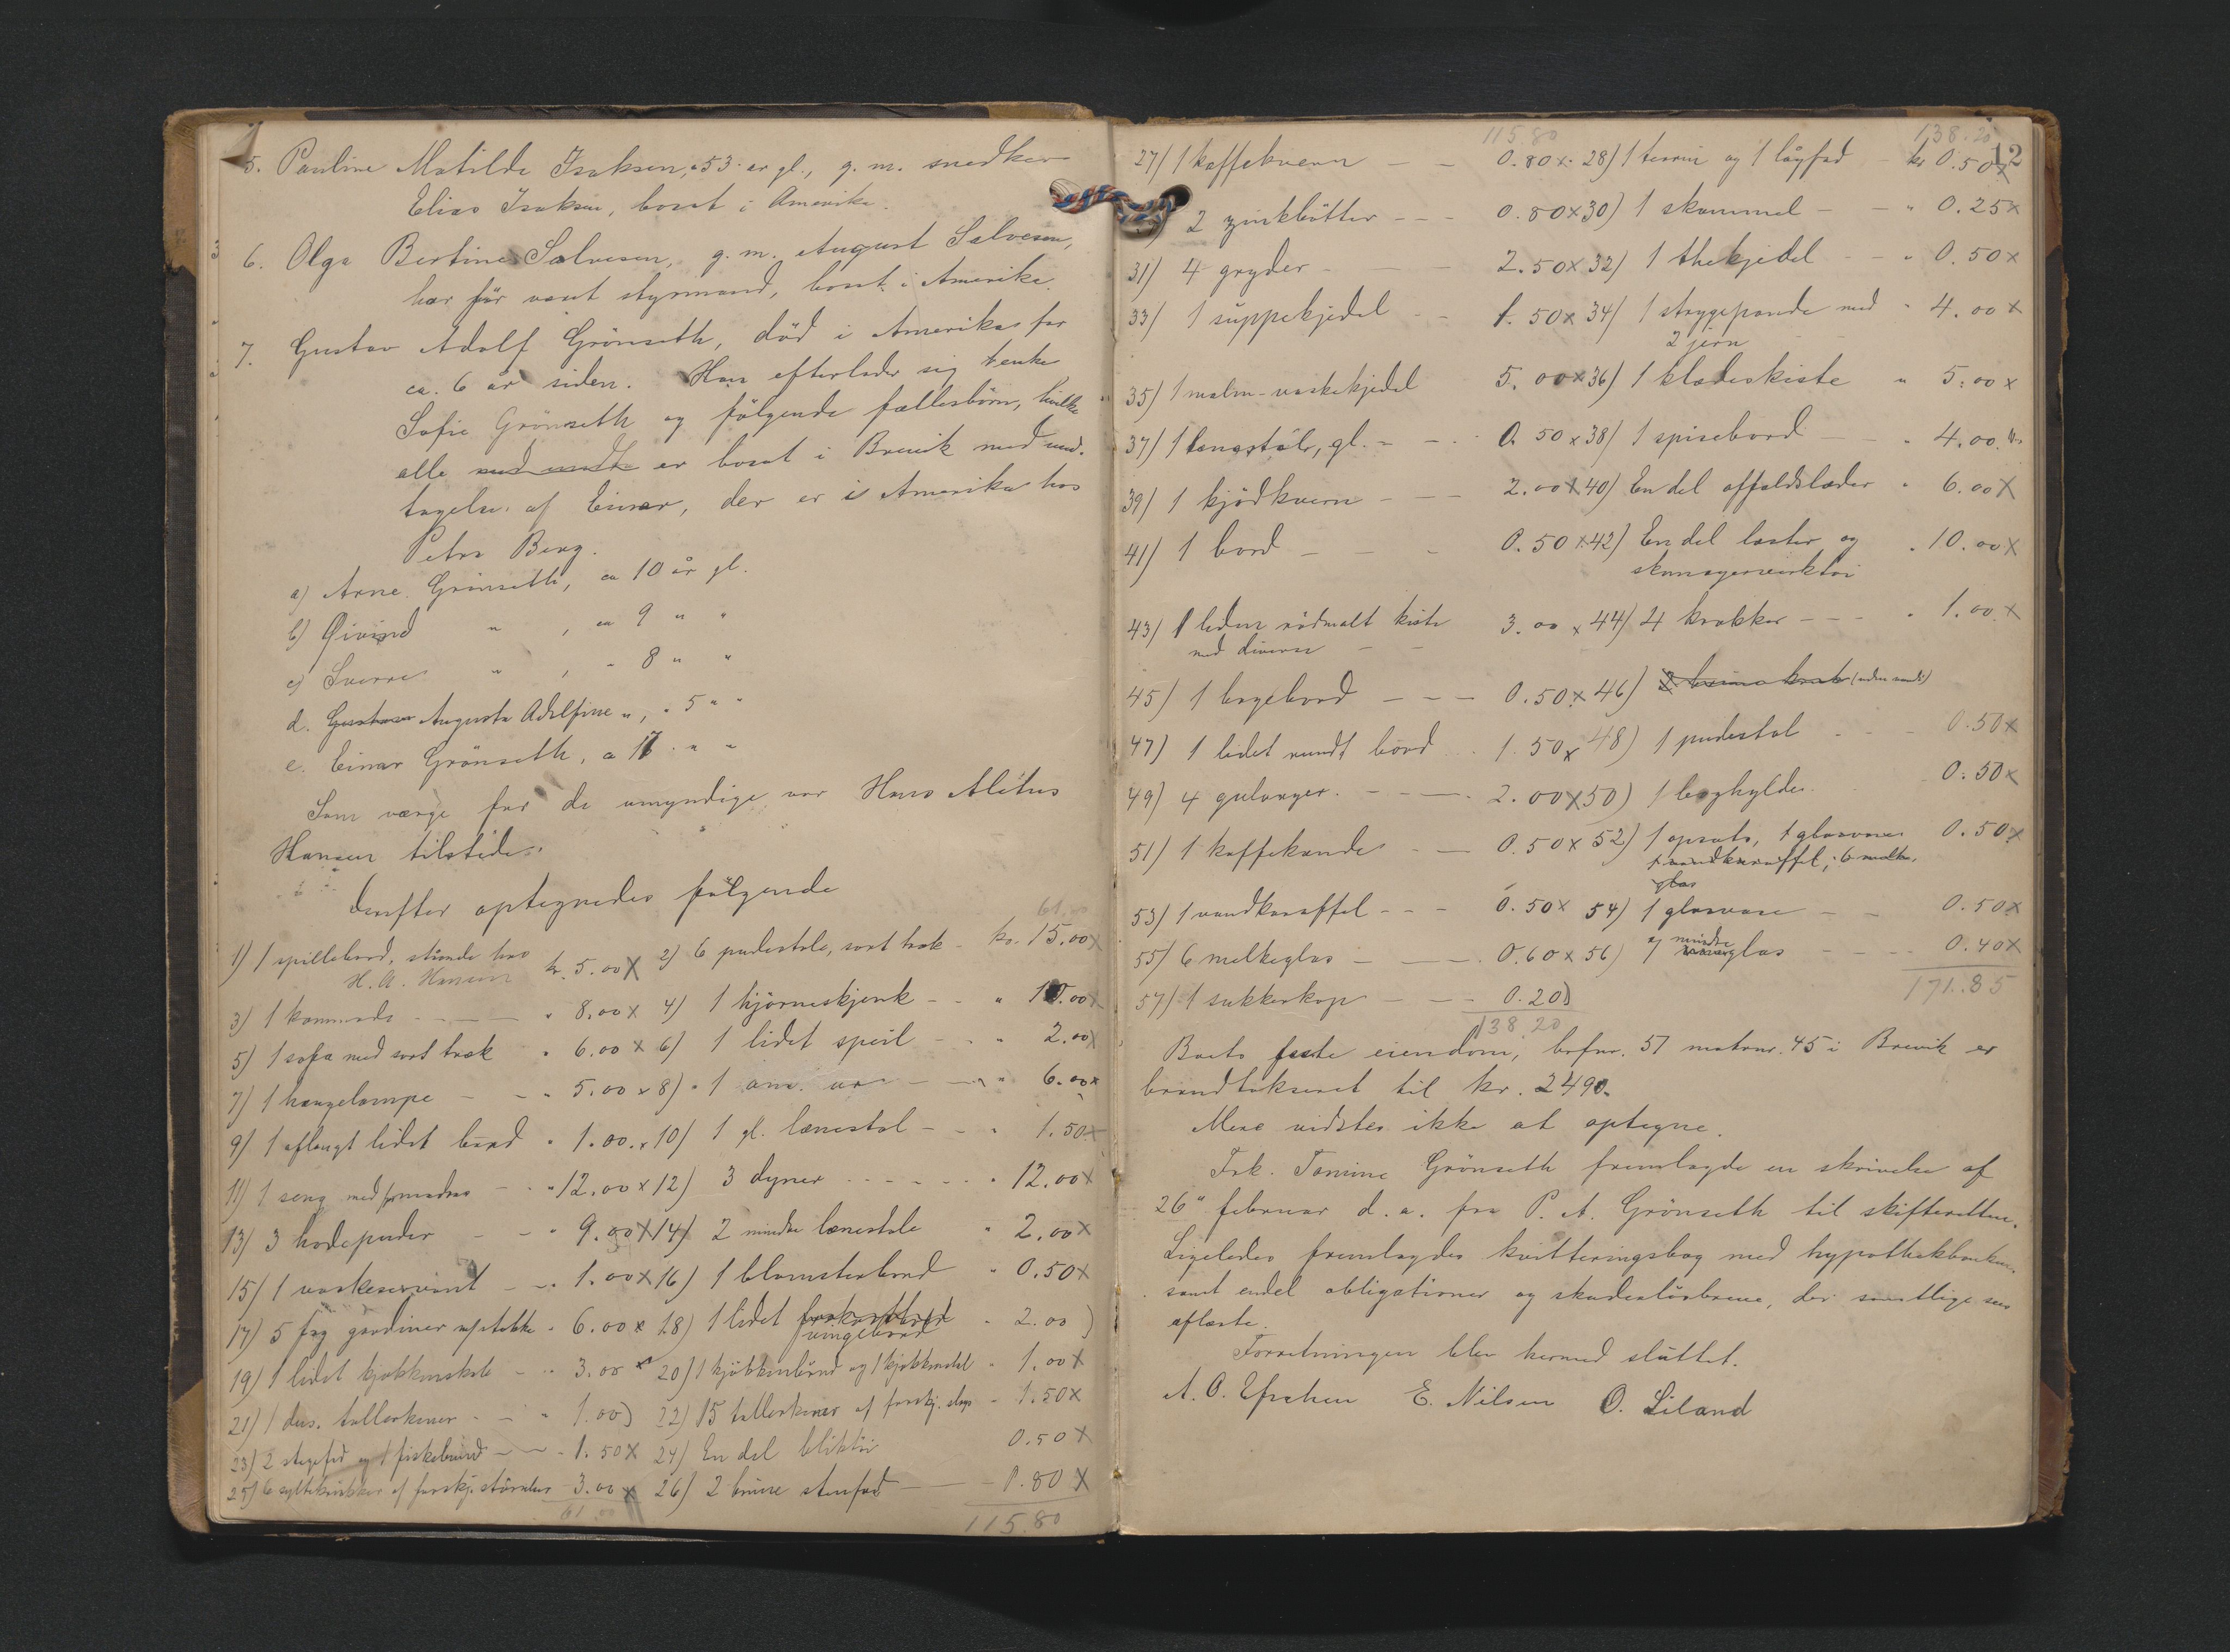 5. Pauline Matilde Isaksen, 53 år gl., g. m. snedker
Elias Isaksen, bosat i Amerika.
6. Olga Bertine Salvesen, g. m. August Salvesen,
har før været styrmand, bosat i Amerika.
7. Gustav Adolf Grönseth, död i Amerika for
ca. 6 år siden. Han efterlader sig enke
Sofie Grönseth og fölgende fællesbörn, hvilke
alle er bosat i Brevik med und-
tagelse af Einar, der er i Amerika hos
Petra Berg.
a) Arne Grönseth, ca 10 år gl.
b) Øivind " , ca 9 " "
c) Sverre " , " 8 " "
d. Gustava Augusta Adolfine " , " 5 " "
e. Einar Grönseth, ca 17 " "
Som værge for de umyndige var Hans Alétus
Hansen tilstede.
Derefter optegnedes fölgende
61.00
1) 1 spillebord, stående hos kr. 5.00 X 2) 6 pudestole, sort træk - kr. 15.00 X
H. A. Hansen
3) 1 kommode - " 8.00 X 4) 1 hjörneskjænk - " 10.00 X
5) 1 sofa med sort træk " 6.00 X 6) 1 lidet speil - " 2.00 X
7) 1 hængelampe - " 5.00 x 8) 1 am. ur - " 6.00 x
9) 1 aflangt lidet bord " 1.00 x 10) 1 gl. lænestol - " 1.50 x
11) 1 seng med - " 12.00 x 12) 3 dyner - " 12.00 X
13) 3 hodeputer - " 9.00 X 14) 2 mindre lænestole " 2.00 X
15) 1 vaskeservant - " 1.00 X 16) 1 blomsterbord " 0.50 X
17) 5 fag gardiner - 6.00 x 18) 1 lidet " 2.00 )
vingebord
19) 1 lidet kjökkenskab - " 3.00 x 20) 1 kjökkenbord og 1 " 1.00 X
21) 1 dus. tallerkener - " 1.00 ) 22) 15 tallerkener af forskj. slags - 1.50 X
23) 2 stegefad og 1 - 1.50 X 24) En del bliktöi 0.50 X
25) 6 syltekrukker af forskj. störrelser 3.00 x 26) 2 brune stenfad - 0.80 X
61.00 115.80
115.80 138.20
12
27) 1 kaffekvern - 0.80 x 28) 1 terrin og 1 lågfad - kr 0.50 X
2 zinkbötter - 0.80 x 30) 1 skammel - " 0.25 x
31) 4 gryder - 2.50 x 32) 1 thekjedel - " 0.50 x
33) 1 suppekjedel - 1.50 x 34) 1 strygepande med " 4.00 x
2 jern
35) 1 malm-vaskekjedel 5.00 x 36) 1 klædeskiste " 5.00 x
37) 1 langstöl, gl. - 0.50 x 38) 1 spisebord " 4.00
39) 1 kjödkvern - 2.00 X 40) En del affaldslæder " 6.00 X
41) 1 bord - 0.50 x 42) En del læster og " 10.00 X
skomagerverktöi
43) 1 liden rödmalt kiste 3.00 x 44) 4 krakker - " 1.00 X
med diverse -
45) 1 bagebord - 0.50 x 46) (uden værdi)
47) 1 lidet rundt bord 1.50 x 48) 1 pudestol - 0.50 x
49) 4 - 2.00 X 50) 1 boghylde 0.50 x
51) 1 kaffekande - 0.50 x 52) 1 opsats, 1 glasvase 0.50 x
1 vandkaraffel, 6 melke-
glas
53) 1 vandkaraffel - 0.50 x 54) 1 glasvase - 0.50 x
55) 6 melkeglas - 0.60 x 56) 7 mindre glas - 0.40 x
57) 1 sukkerkop - 0.20 ) 171.85
138.20
Boets faste eiendom, brfnr. 57 matrnr. 45 i Brevik er
brandtakseret til kr. 2490.
Mere vidstes ikke at optegne.
Frk. Tomine Grönseth fremlagde en skrivelse af
26" februar d. a. fra P. A. Grönseth til skifteretten.
Ligeledes fremlagdes kvitteringsbog med hypothekbanken.
samt endel obligationer og skadeslösbreve, der samtlige sees
aflæste.
Forretningen blev hermed sluttet.
A. O. E. Nilsen O. Liland